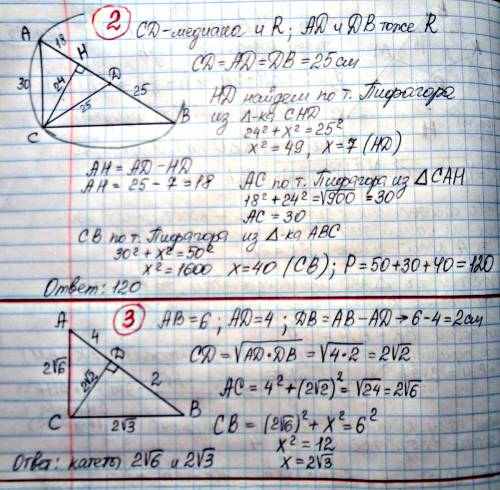 2 CD-медиана и R; AD и DB тоже R
CD=AD=DB=25см
HD найдем по т. Пифагора
из Δ-ка CHD
24²+x²=25²
x²=49, x=7 (HD)
A
18
H
D
30
24
25
25
C
B
AH=AD-HD
AH=25-7=18
AC по т. Пифагора из △CAH
18²+24²=√900=30
AC=30
CB по т. Пифагора из Δ-ка ABC
30²+x²=50²
x²=1600 x=40 (CB); P=50+30+40=120
Ответ: 120
3 AB=6; AD=4; DB=AB-AD→6-4=2см
CD=√AD·DB=√4·2=2√2
AC=4²+(2√2)²=√24=2√6
CB=(2√6)²+x²=6²
x²=12
x=2√3
A
4
D
2√6
2√2
2
C
2√3
B
Ответ: катеты 2√6 и 2√3